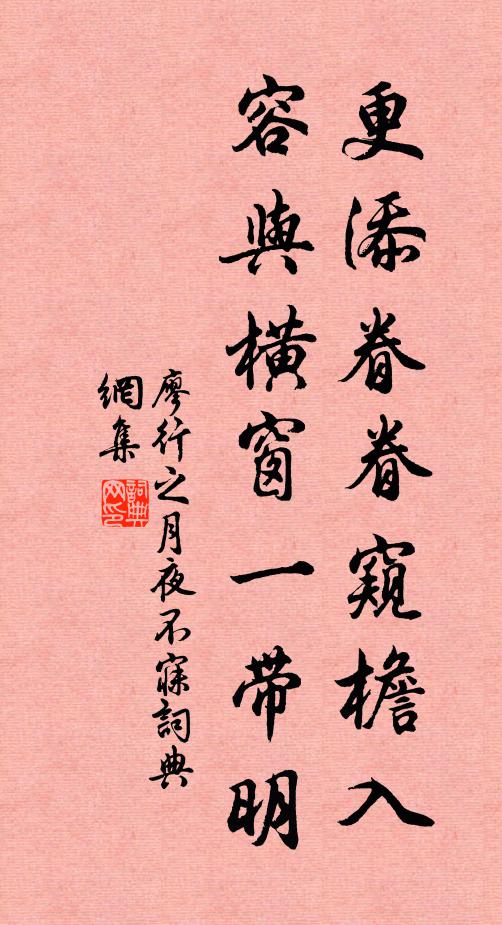 更添眷眷窺檐入
容與橫窗一帶明
廖行之月夜不寐詞典
網集
詞典
网印